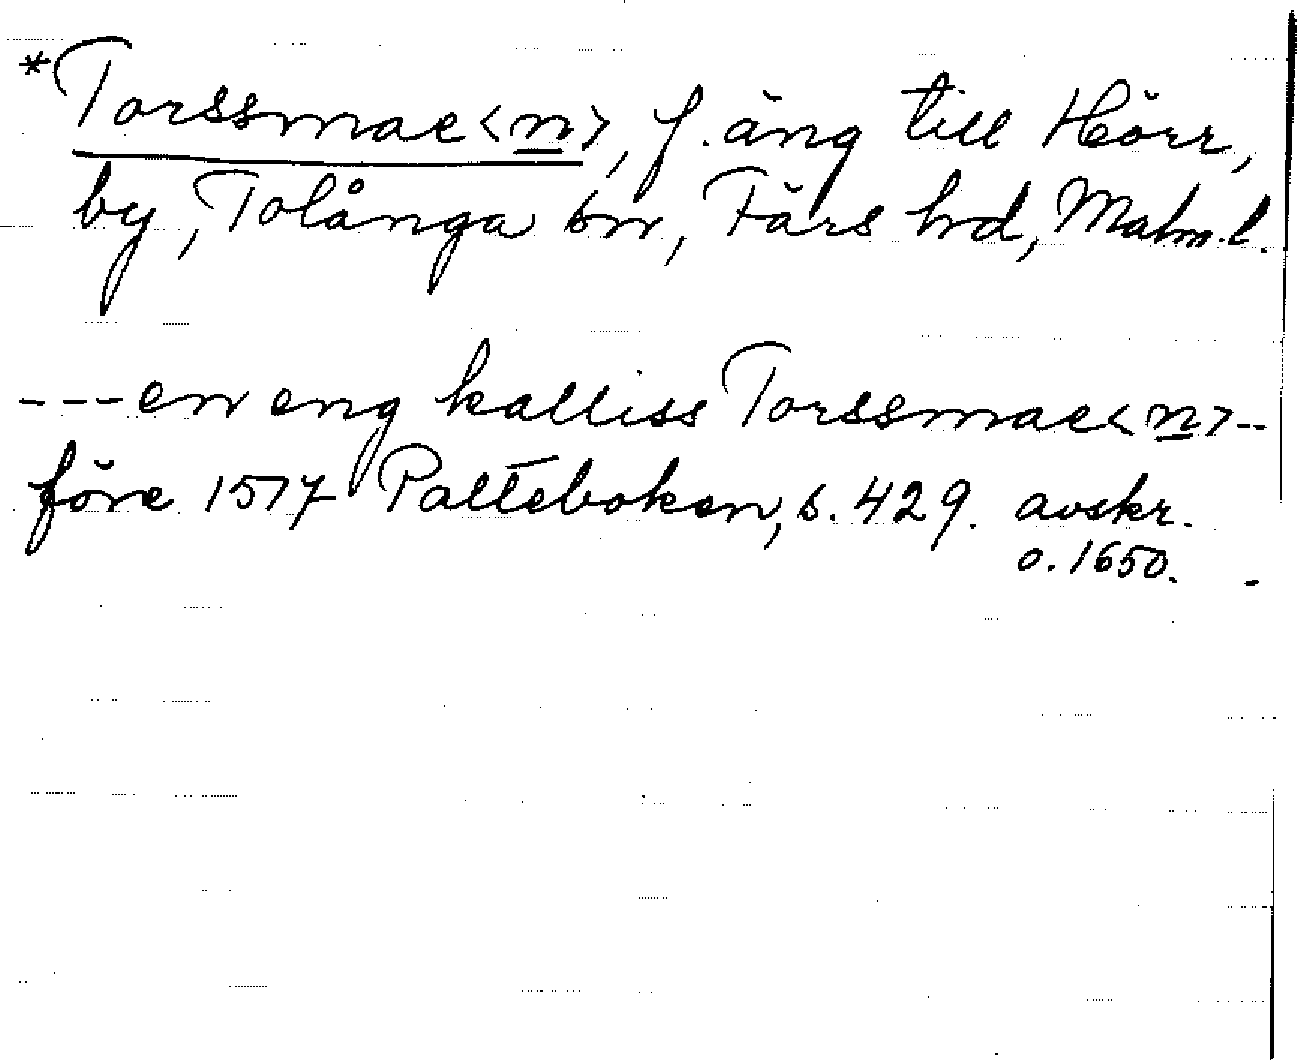 *Torssmae<n>, f. äng till Hörr,
by, Tolånga sn, Färs hd, Malm.l.
---en eng kalliss Torssmae<n>--
före 1517 Palteboken, s. 429. avskr.
o. 1650.